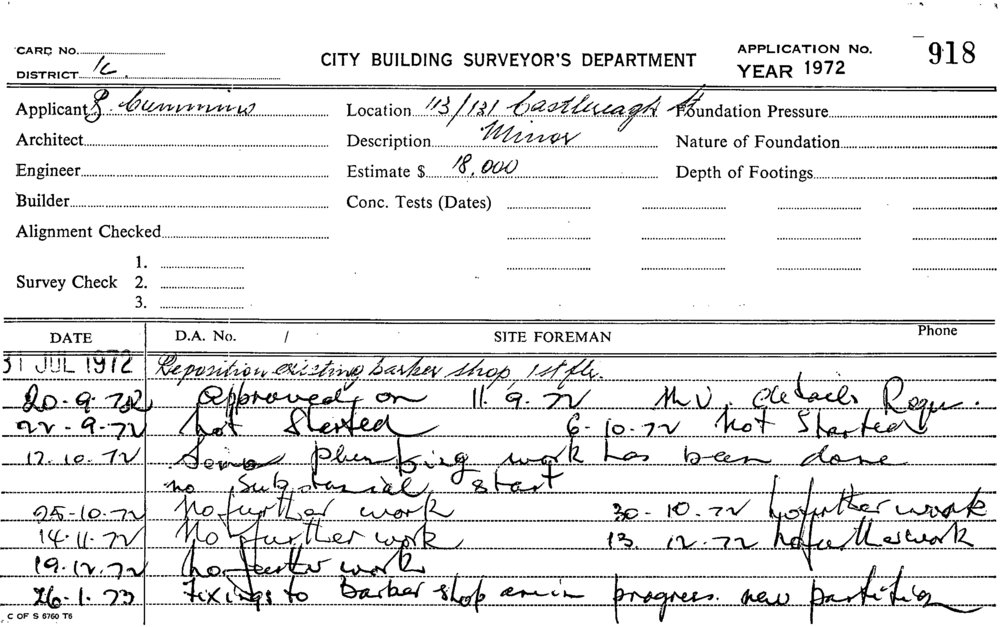 CARD No.
DISTRICT 1c.
CITY BUILDING SURVEYOR'S DEPARTMENT
APPLICATION No. 918
YEAR 1972
Applicant Cummins
Location 113/131 Castlereagh St
Foundation Pressure
Architect
Description Minor
Nature of Foundation
Engineer
Estimate $ 18,000
Depth of Footings
Builder
Conc. Tests (Dates)
Alignment Checked
Survey Check 1.
2.
3.
DATE D.A. No. / SITE FOREMAN Phone
31 JUL 1972 Reposition existing barber shop, 1st flr.
20-9-72 Approved on 11.9.72 details Requ.
22-9-72 Not Started 6-10-72 Not Started
12.10.72 Some plumbing work has been done
no Substancial start
25-10-72 No further work 30-10-72 No further work
14.11.72 No further work 13.12.72 No further work
19.12.72 No further work
26-1-73 Fixings to barber shop are in progress. new partition
C OF S 6760 T6